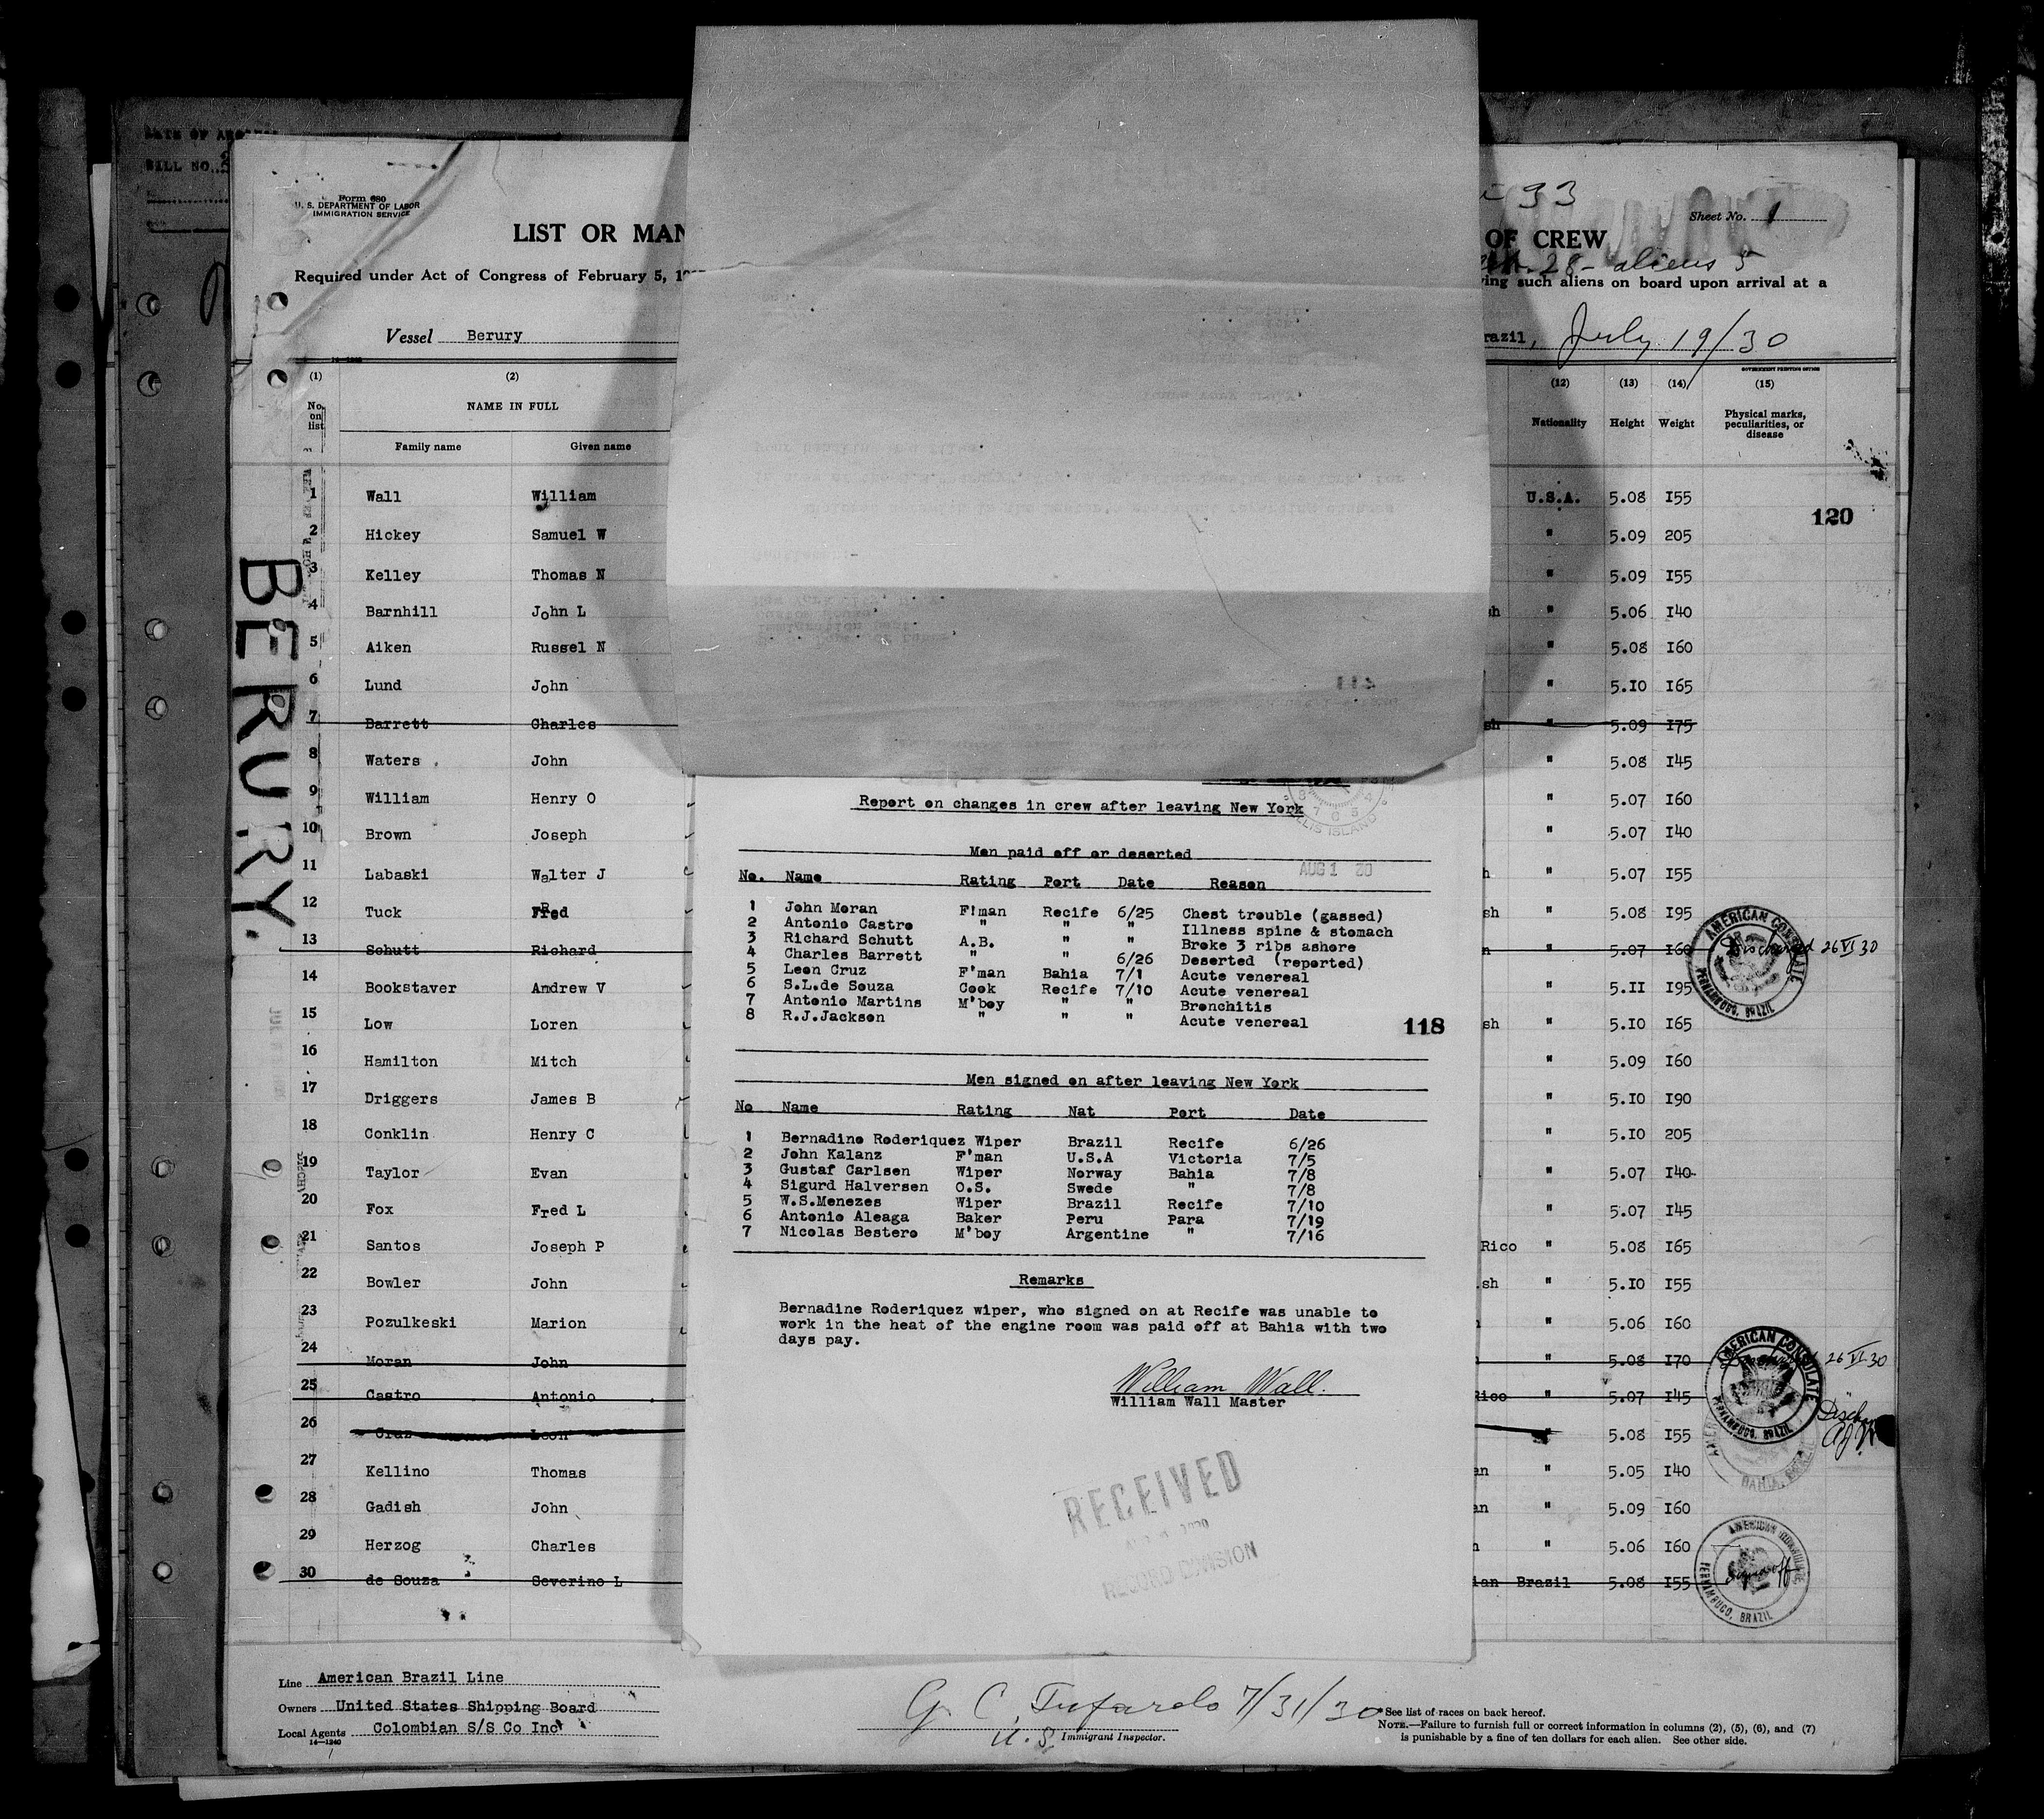 DATE OF
BILL NO.
Form 680
U. S. DEPARTMENT OF LABOR
IMMIGRATION SERVICE
LIST OR MAN
Required under Act of Congress of February 5,
Vessel Berury
33
Sheet No. 1
OF CREW
28 - aliens 5
ing such aliens on board upon arrival at a
razil, July 19/30
GOVERNMENT PRINTING OFFICE
(1) (2) (12) (13) (14) (15)
No. on list NAME IN FULL Nationality Height Weight Physical marks, peculiarities, or disease
Family name Given name
BERURY.
1 Wall William U.S.A. 5.08 I55
120
2 Hickey Samuel W " 5.09 205
3 Kelley Thomas N " 5.09 I55
4 Barnhill John L sh " 5.06 I40
5 Aiken Russel N " 5.08 I60
6 Lund John " 5.I0 I65
7 Barrett Charles sh " 5.09 I75
8 Waters John " 5.08 I45
9 William Henry O " 5.07 I60
10 Brown Joseph " 5.07 I40
11 Labaski Walter J h " 5.07 I55
12 Tuck Fred sh " 5.08 I95
13 Schutt Richard n " 5.07 I60 Discharged 26 VI 30
AMERICAN CONSULATE
PERNAMBUCO, BRAZIL
14 Bookstaver Andrew V " 5.II I95
15 Low Loren sh " 5.I0 I65
16 Hamilton Mitch " 5.09 I60
17 Driggers James B " 5.I0 I90
18 Conklin Henry C " 5.I0 205
19 Taylor Evan " 5.07 I40
20 Fox Fred L " 5.07 I45
21 Santos Joseph P Rico " 5.08 I65
22 Bowler John sh " 5.I0 I55
23 Pozulkeski Marion n " 5.06 I60
24 Moran John " 5.08 I70 26 VI 30
AMERICAN CONSULATE
PERNAMBUCO, BRAZIL
25 Castro Antonio Rico " 5.07 I45
26 Cruz Leon " 5.08 I55
BAHIA, BRAZIL
27 Kellino Thomas an " 5.05 I40
28 Gadish John an " 5.09 I60
29 Herzog Charles n " 5.06 I60
30 de Souza Severino L ian Brazil 5.08 I55 Signed off
AMERICAN
PERNAMBUCO, BRAZIL
ELLIS ISLAND
Report on changes in crew after leaving New York
Men paid off or deserted
AUG 1 30
No. Name Rating Port Date Reason
1 John Moran F'man Recife 6/25 Chest trouble (gassed)
2 Antonio Castro " " " Illness spine & stomach
3 Richard Schutt A.B. " " Broke 3 ribs ashore
4 Charles Barrett " " 6/26 Deserted (reported)
5 Leon Cruz F'man Bahia 7/1 Acute venereal
6 S.L.de Souza Cook Recife 7/10 Acute venereal
7 Antonio Martins M'boy " " Bronchitis
8 R.J.Jackson " " " Acute venereal
118
Men signed on after leaving New York
No Name Rating Nat Port Date
1 Bernadino Roderiquez Wiper Brazil Recife 6/26
2 John Kalanz F'man U.S.A Victoria 7/5
3 Gustaf Carlsen Wiper Norway Bahia 7/8
4 Sigurd Halversen O.S. Swede " 7/8
5 W.S.Menezes Wiper Brazil Recife 7/10
6 Antonio Aleaga Baker Peru Para 7/19
7 Nicolas Bestero M'boy Argentine " 7/16
Remarks
Bernadine Roderiquez wiper, who signed on at Recife was unable to
work in the heat of the engine room was paid off at Bahia with two
days pay.
William Wall.
William Wall Master
RECEIVED
RECORD DIVISION
Line American Brazil Line
Owners United States Shipping Board
Local Agents Colombian S/S Co Inc
14—1240
G. C. Tufarolo 7/31/30
U. S. Immigrant Inspector.
See list of races on back hereof.
NOTE.—Failure to furnish full or correct information in columns (2), (5), (6), and (7)
is punishable by a fine of ten dollars for each alien. See other side.